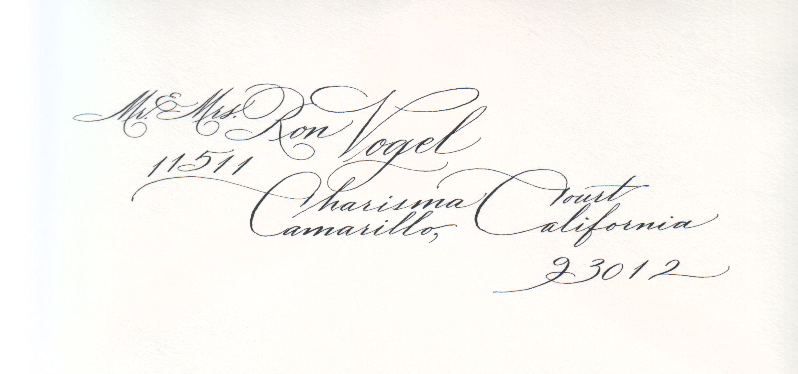 Mr. & Mrs. Ron Vogel
11511 Charisma Court
Camarillo, California
93012